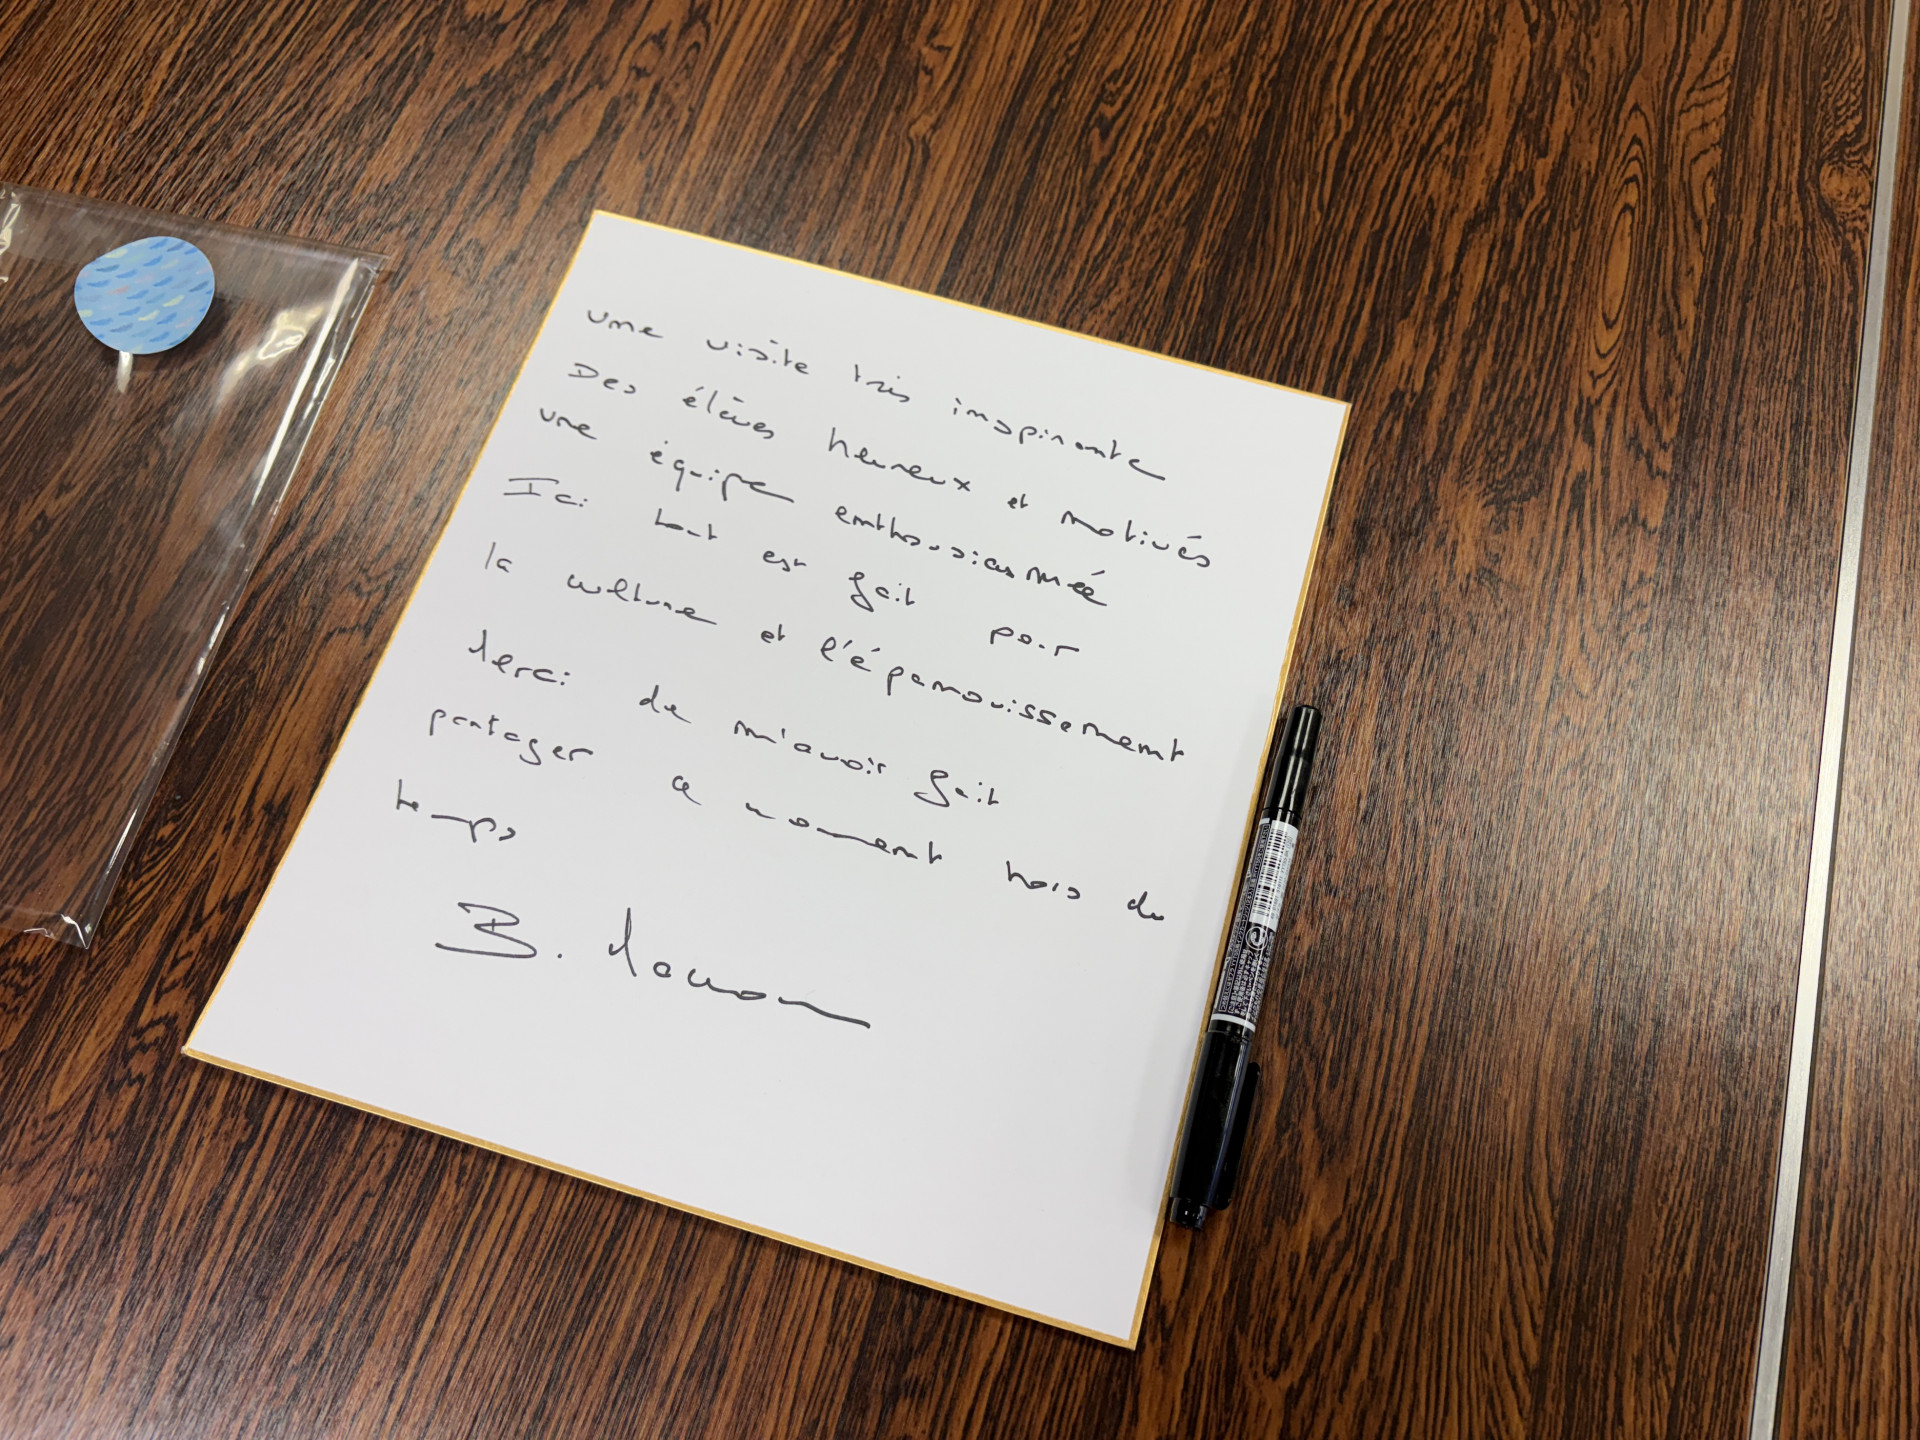 une visite très inspirante
Des élèves heureux et motivés
une équipe enthousiasmée
Ici tout est fait pour
la culture et l'épanouissement
Merci de m'avoir fait
partager ce moment hors du
temps
B.